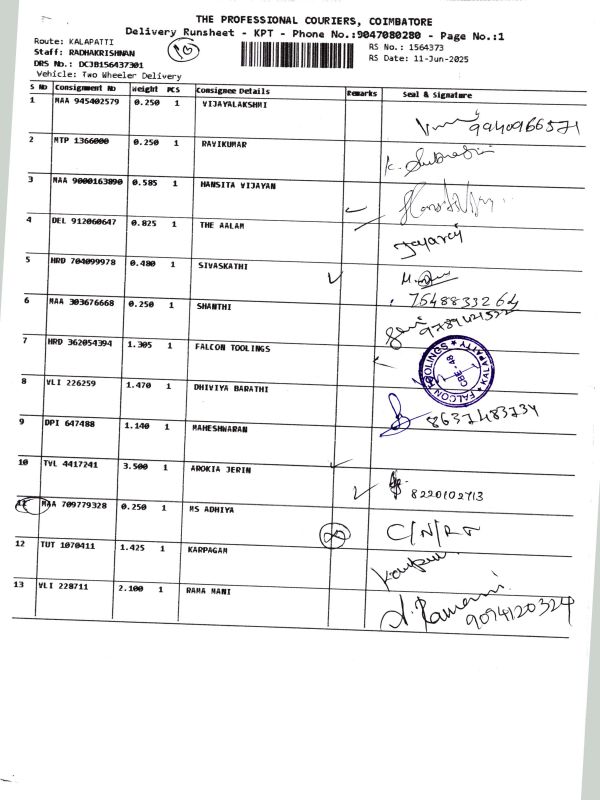 THE PROFESSIONAL COURIERS, COIMBATORE
Delivery Runsheet - KPT - Phone No.:9047080280 - Page No.:1
Route: KALAPATTI
RS No.: 1564373
Staff: RADHAKRISHNAN
RS Date: 11-Jun-2025
DRS No.: DCJB156437301
Vehicle: Two Wheeler Delivery
S No Consignment No Weight PCS Consignee Details Remarks Seal & Signature
1 MAA 945402579 0.250 1 VIJAYALAKSHMI 9940966571
2 MTP 1366000 0.250 1 RAVIKUMAR
3 MAA 9000163890 0.585 1 HANSITA VIJAYAN
4 DEL 912060647 0.825 1 THE AALAM Jayaraj
5 HRD 704099978 0.480 1 SIVASKATHI
7548833264
6 MAA 303676668 0.250 1 SHANTHI
7 HRD 362054394 1.305 1 FALCON TOOLINGS FALCON TOOLINGS ★ KALAPATTY ★ CBE-48
8 VLI 226259 1.470 1 DHIVIYA BARATHI 8637483734
9 DPI 647488 1.140 1 MAHESHWARAN
10 TVL 4417241 3.500 1 AROKIA JERIN 8220102713
11 MAA 709779328 0.250 1 MS ADHIYA
12 TUT 1070411 1.425 1 KARPAGAM
13 VLI 228711 2.100 1 RAMA MANI 9094120324